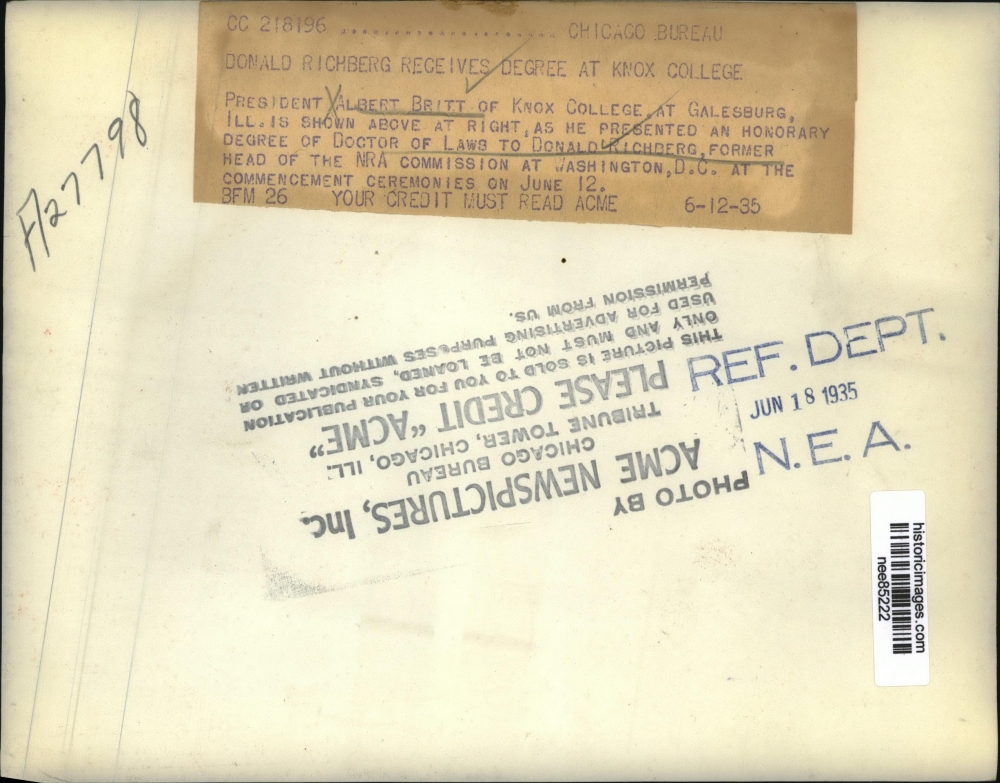 CC 218196 .................... CHICAGO BUREAU
DONALD RICHBERG RECEIVES DEGREE AT KNOX COLLEGE
PRESIDENT ALBERT BRITT OF KNOX COLLEGE, AT GALESBURG,
ILL. IS SHOWN ABOVE AT RIGHT, AS HE PRESENTED AN HONORARY
DEGREE OF DOCTOR OF LAWS TO DONALD RICHBERG, FORMER
HEAD OF THE NRA COMMISSION AT WASHINGTON, D.C. AT THE
COMMENCEMENT CEREMONIES ON JUNE 12.
BFM 26 YOUR CREDIT MUST READ ACME 6-12-35
F/27798
PHOTO BY
ACME NEWSPICTURES, Inc.
CHICAGO BUREAU
TRIBUNE TOWER, CHICAGO, ILL.
PLEASE CREDIT "ACME"
THIS PICTURE IS SOLD TO YOU FOR YOUR PUBLICATION
ONLY AND MUST NOT BE LOANED, SYNDICATED OR
USED FOR ADVERTISING PURPOSES WITHOUT WRITTEN
PERMISSION FROM US.
REF. DEPT.
JUN 18 1935
N. E. A.
historicimages.com
nee85222